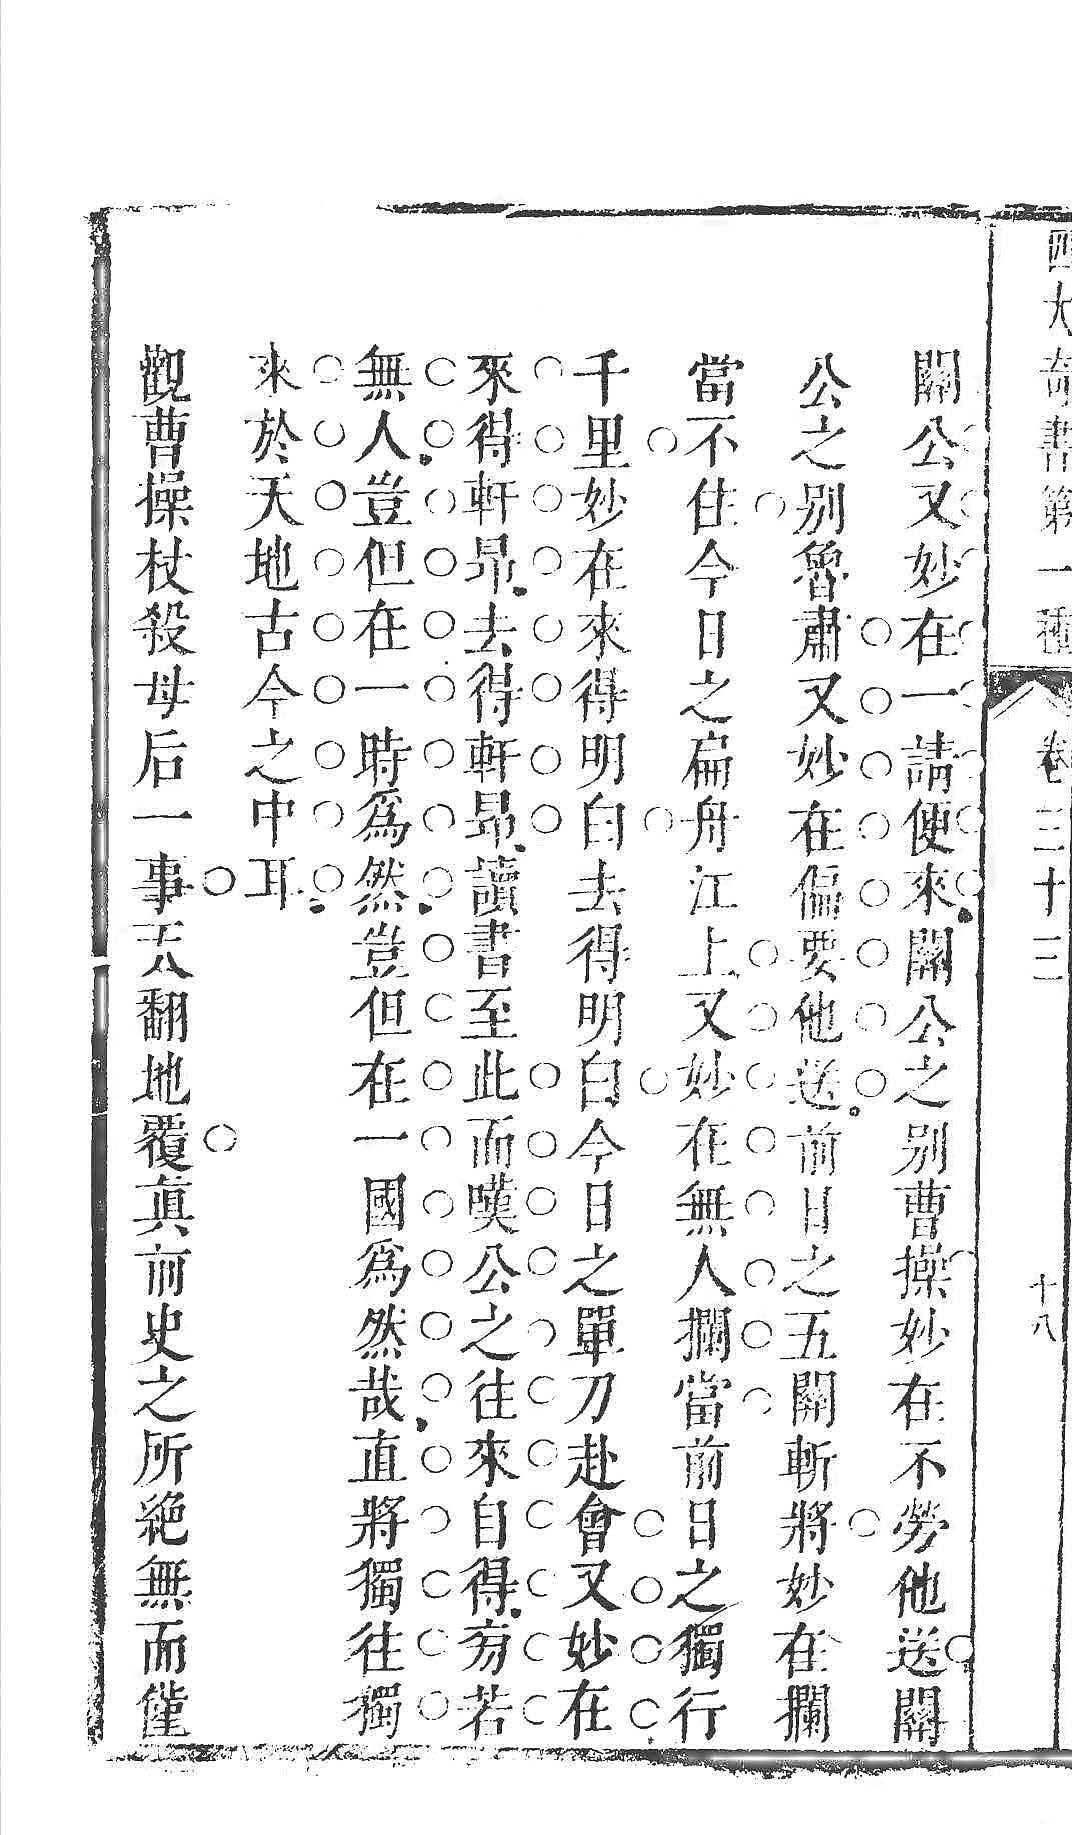 四大奇書第一種 卷三十三 十八
關公又妙在一請便來關公之别曹操妙在不勞他送關
公之别魯肅又妙在偏要他送前日之五關斬將妙在攔
當不住今日之扁舟江上又妙在無人攔當前日之獨行
千里妙在來得明白去得明白今日之單刀赴會又妙在
來得軒昂去得軒昂讀書至此而嘆公之往來自得旁若
無人豈但在一時爲然豈但在一國爲然哉直將獨往獨
來於天地古今之中耳
觀曹操杖殺母后一事天翻地覆眞前史之所絶無而僅